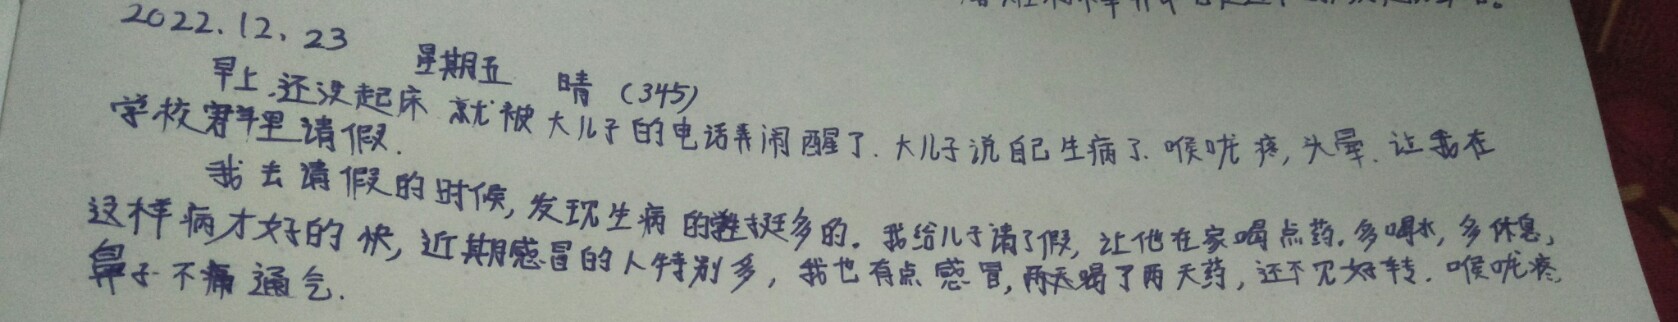 2022.12.23 星期五 晴 (345)
早上.还没起床就被大儿子的电话弄闹醒了.大儿子说自己生病了.喉咙疼,头晕.让我在
学校群里请假.
我去请假的时候,发现生病的挺多的。我给儿子请了假,让他在家喝点药.多喝水,多休息,
这样病才好的快,近期感冒的人特别多,我也有点感冒,喝了两天药,还不见好转.喉咙疼,
鼻子不通气.